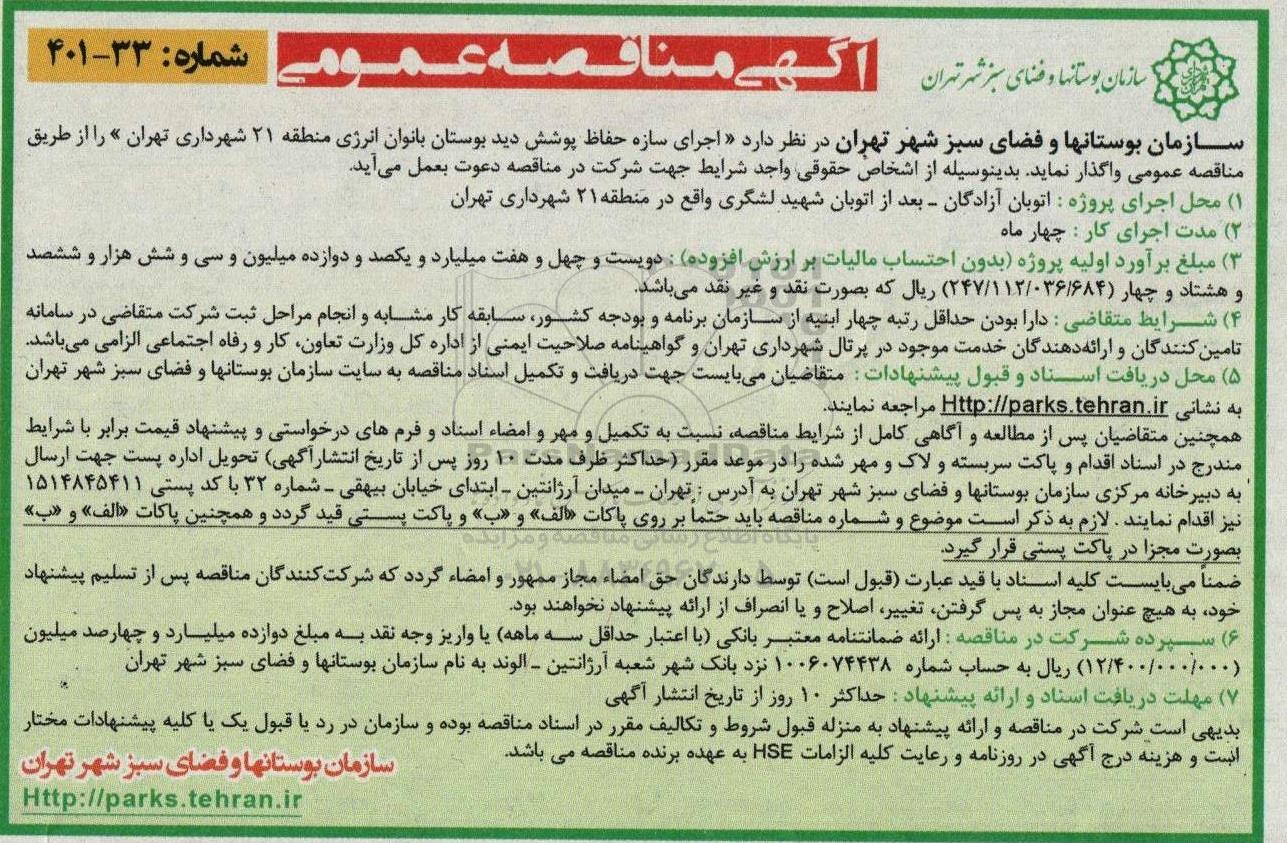 سازمان بوستانها و فضای سبز شهر تهران
آگهی مناقصه عمومی
شماره: ۳۳-۴۰۱
ســازمان بوستانها و فضای سبز شهر تهران در نظر دارد « اجرای سازه حفاظ پوشش دید بوستان بانوان انرژی منطقه ۲۱ شهرداری تهران » را از طریق
مناقصه عمومی واگذار نماید. بدینوسیله از اشخاص حقوقی واجد شرایط جهت شرکت در مناقصه دعوت بعمل می‌آید.
۱) محل اجرای پروژه : اتوبان آزادگان ـ بعد از اتوبان شهید لشگری واقع در منطقه۲۱ شهرداری تهران
۲) مدت اجرای کار : چهار ماه
۳) مبلغ برآورد اولیه پروژه (بدون احتساب مالیات بر ارزش افزوده) : دویست و چهل و هفت میلیارد و یکصد و دوازده میلیون و سی و شش هزار و ششصد
و هشتاد و چهار (۲۴۷/۱۱۲/۰۳۶/۶۸۴) ریال که بصورت نقد و غیر نقد می‌باشد.
۴) شــرایط متقاضی : دارا بودن حداقل رتبه چهار ابنیه از ســازمان برنامه و بودجه کشــور، ســابقه کار مشــابه و انجام مراحل ثبت شرکت متقاضی در سامانه
تامین‌کنندگان و ارائه‌دهندگان خدمت موجود در پرتال شهرداری تهران و گواهینامه صلاحیت ایمنی از اداره کل وزارت تعاون، کار و رفاه اجتماعی الزامی می‌باشد.
۵) محل دریافت اســناد و قبول پیشنهادات : متقاضیان می‌بایست جهت دریافت و تکمیل اسناد مناقصه به سایت سازمان بوستانها و فضای سبز شهر تهران
به نشانی Http://parks.tehran.ir مراجعه نمایند.
همچنین متقاضیان پس از مطالعه و آگاهی کامل از شرایط مناقصه، نسبت به تکمیل و مهر و امضاء اسناد و فرم های درخواستی و پیشنهاد قیمت برابر با شرایط
مندرج در اسناد اقدام و پاکت سربسته و لاک و مهر شده را در موعد مقرر (حداکثر ظرف مدت ۱۰ روز پس از تاریخ انتشارآگهی) تحویل اداره پست جهت ارسال
به دبیرخانه مرکزی سازمان بوستانها و فضای سبز شهر تهران به آدرس : تهران ـ میدان آرژانتین ـ ابتدای خیابان بیهقی ـ شماره ۳۲ با کد پستی ۱۵۱۴۸۴۵۴۱۱
نیز اقدام نمایند . لازم به ذکر اســت موضوع و شــماره مناقصه باید حتماً بر روی پاکات «الف» و «ب» و پاکت پســتی قید گردد و همچنین پاکات «الف» و «ب»
بصورت مجزا در پاکت پستی قرار گیرد.
ضمناً می‌بایســت کلیه اســناد با قید عبارت (قبول است) توسط دارندگان حق امضاء مجاز ممهور و امضاء گردد که شرکت‌کنندگان مناقصه پس از تسلیم پیشنهاد
خود، به هیچ عنوان مجاز به پس گرفتن، تغییر، اصلاح و یا انصراف از ارائه پیشنهاد نخواهند بود.
۶) ســپرده شــرکت در مناقصه : ارائه ضمانتنامه معتبــر بانکی (با اعتبار حداقل ســه ماهه) یا واریز وجه نقد بــه مبلغ دوازده میلیــارد و چهارصد میلیون
(۱۲/۴۰۰/۰۰۰/۰۰۰) ریال به حساب شماره ۱۰۰۶۰۷۴۴۳۸ نزد بانک شهر شعبه آرژانتین ـ الوند به نام سازمان بوستانها و فضای سبز شهر تهران
۷) مهلت دریافت اسناد و ارائه پیشنهاد : حداکثر ۱۰ روز از تاریخ انتشار آگهی
بدیهی است شرکت در مناقصه و ارائه پیشنهاد به منزله قبول شروط و تکالیف مقرر در اسناد مناقصه بوده و سازمان در رد یا قبول یک یا کلیه پیشنهادات مختار
است و هزینه درج آگهی در روزنامه و رعایت کلیه الزامات HSE به عهده برنده مناقصه می باشد.
سازمان بوستانها و فضای سبز شهر تهران
Http://parks.tehran.ir
ParsNamadData
پایگاه اطلاع رسانی مناقصه و مزایده